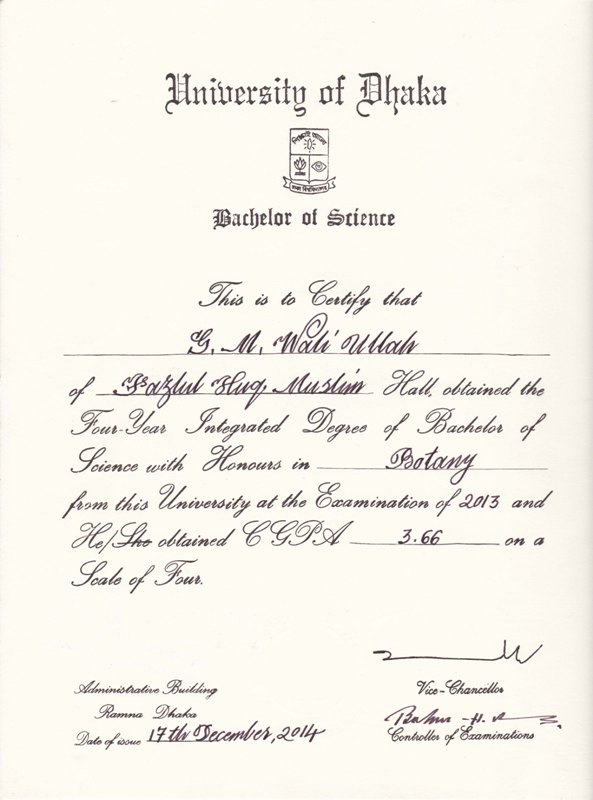 University of Dhaka
শিক্ষাই আলো
ঢাকা বিশ্ববিদ্যালয়
Bachelor of Science
This is to Certify that
G. M. Wali Ullah
of Fazlul Huq Muslim Hall, obtained the
Four-Year Integrated Degree of Bachelor of
Science with Honours in Botany
from this University at the Examination of 2013 and
He/She obtained CGPA 3.66 on a
Scale of Four.
Administrative Building
Ramna Dhaka
Date of issue 17th December, 2014
Vice-Chancellor
Controller of Examinations